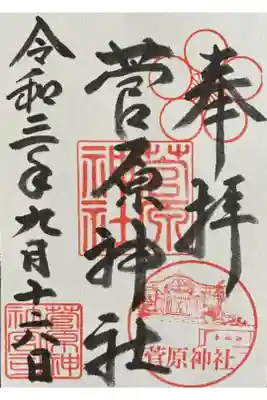 奉拝
菅原神社
令和三年九月十六日
菅原
神社
菅原神社